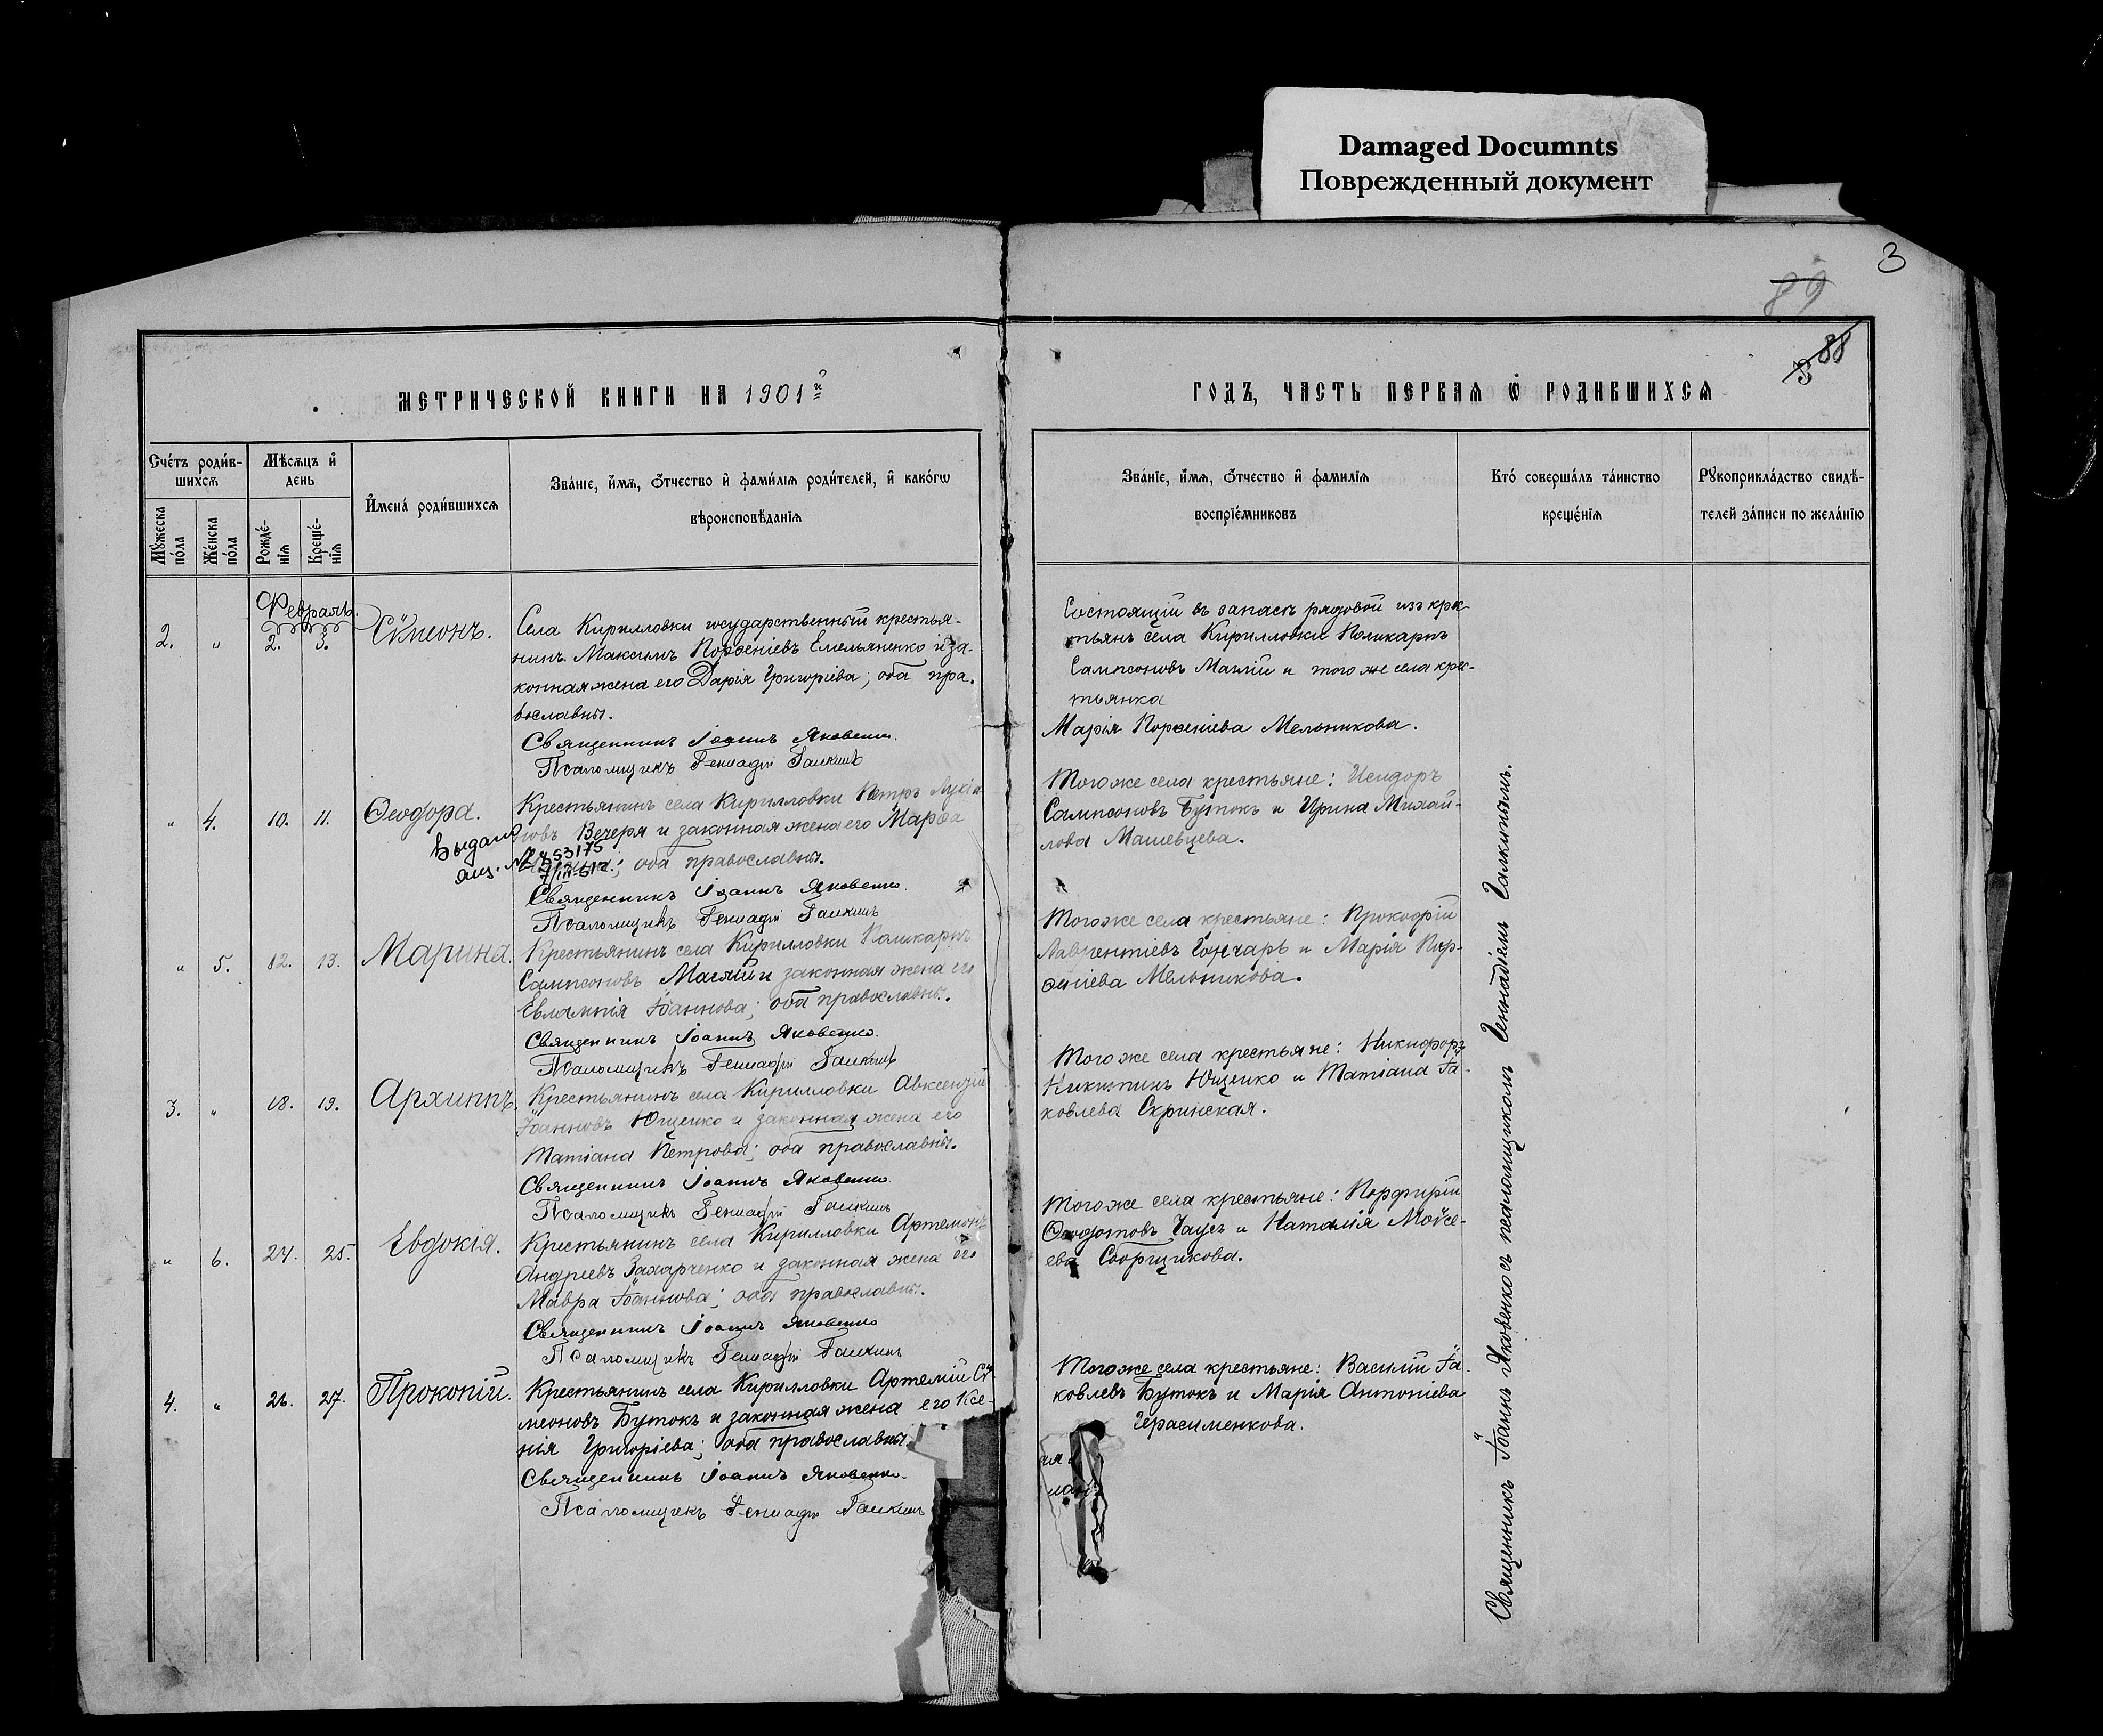 Damaged Documnts
Поврежденный документ
3
89
88
3
МЕТРИЧЕСКОЙ КНИГИ НА 1901й
ГОДЪ, ЧАСТЬ ПЕРВАѦ Ѡ РОДИВШИХСѦ
Сче́тъ роди́в-
шихсѧ
Мѣсѧцъ и҆
день
И҆мена̀ роди́вшихсѧ
Зва́нїе, и҆́мѧ, ѻ҆́тчество и҆ фами́лїѧ роди́телей, и҆ како́гѡ
вѣроисповѣ́данїѧ
Мꙋ́жеска
по́ла
Же́нска
по́ла
Рожде́-
нїѧ
Креще́-
нїѧ
Зва́нїе, и҆́мѧ, ѻ҆́тчество и҆ фамилїѧ
воспрїе́мниковъ
Кто́ соверша́лъ та́инство
креще́нїѧ
Рꙋкоприкла́дство свидѣ́-
телей за́писи по жела́нїю
Февраль.
2. " 2. 3. Сѷмеонъ.
Села Кирилловки государственный крестья-
нинъ Максимъ Порѳеніевъ Емельяненко и за-
конная жена его Дарія Григоріева; оба пра-
вославны.
Священникъ Іоаннъ Яковенко.
Псаломщикъ Геннадій Галкинъ
Состоящій въ запасѣ рядовой изъ крес-
тьянъ села Кирилловки Поликарпъ
Сампсоновъ Маглій и того же села крес-
тьянка
Марія Порѳеніева Мельникова.
" 4. 10. 11. Ѳеодора.
Крестьянинъ села Кирилловки Петръ Лукіа
новъ Вечеря и законная жена его Марѳа
оба православны.
Выдано
853175
Священникъ Іоаннъ Яковенко.
Псаломщикъ Геннадій Галкинъ
Того же села крестьяне: Исидоръ
Сампсоновъ Бутокъ и Ирина Михай-
лова Машевцева.
" 5. 12. 13. Марина.
Крестьянинъ села Кирилловки Поликарпъ
Сампсоновъ Маглій и законная жена его
Евлампія Іоаннова; оба православны.
Священникъ Іоаннъ Яковенко.
Псаломщикъ Геннадій Галкинъ
Того же села крестьяне: Прокофій
Лаврентіевъ Гончаръ и Марія Пор-
ѳеніева Мельникова.
3. " 18. 19. Архиппъ.
Крестьянинъ села Кирилловки Авксентій
Іоанновъ Ющенко и законная жена его
Татіана Петрова; оба православны.
Священникъ Іоаннъ Яковенко.
Псаломщикъ Геннадій Галкинъ
Того же села крестьяне: Никифоръ
Никитинъ Ющенко и Татіана Іа-
ковлева Скринская.
" 6. 24. 25. Евдокія.
Крестьянинъ села Кирилловки Артемонъ
Андреевъ Захарченко и законная жена его
Мавра Іоаннова; оба православны.
Священникъ Іоаннъ Яковенко
Псаломщикъ Геннадій Галкинъ
Того же села крестьяне: Порфирій
Ѳеодотовъ Гаусъ и Наталія Мойсе-
ева Сборщикова.
4. " 26. 27. Прокопій.
Крестьянинъ села Кирилловки Артемій Сѷ-
меоновъ Бутокъ и законная жена его Ксе-
нія Григоріева; оба православны.
Священникъ Іоаннъ Яковенко.
Псаломщикъ Геннадій Галкинъ
Того же села крестьяне: Василій Іа-
ковлевъ Бутокъ и Марія Антоніева
Герасименкова.
Священникъ Іоаннъ Яковенко съ псаломщикомъ Геннадіемъ Галкинымъ.